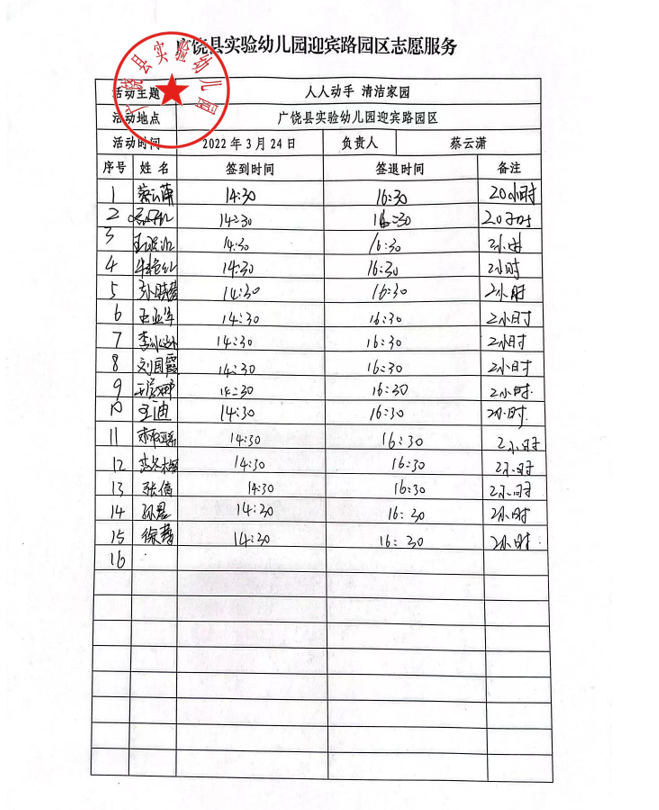 广饶县实验幼儿园迎宾路园区志愿服务
广饶县实验幼儿园
活动主题 人人动手 清洁家园
活动地点 广饶县实验幼儿园迎宾路园区
活动时间 2022年3月24日 负责人 蔡云潇
序号 姓名 签到时间 签退时间 备注
1 蔡云潇 14:30 16:30 20小时
2 14:30 16:30 20小时
3 14:30 16:30 2小时
4 14:30 16:30 2小时
5 14:30 16:30 2小时
6 王亚华 14:30 16:30 2小时
7 14:30 16:30 2小时
8 刘国霞 14:30 16:30 2小时
9 14:30 16:30 2小时
10 王迪 14:30 16:30 2小时
11 14:30 16:30 2小时
12 14:30 16:30 2小时
13 张倩 14:30 16:30 2小时
14 14:30 16:30 2小时
15 14:30 16:30 2小时
16